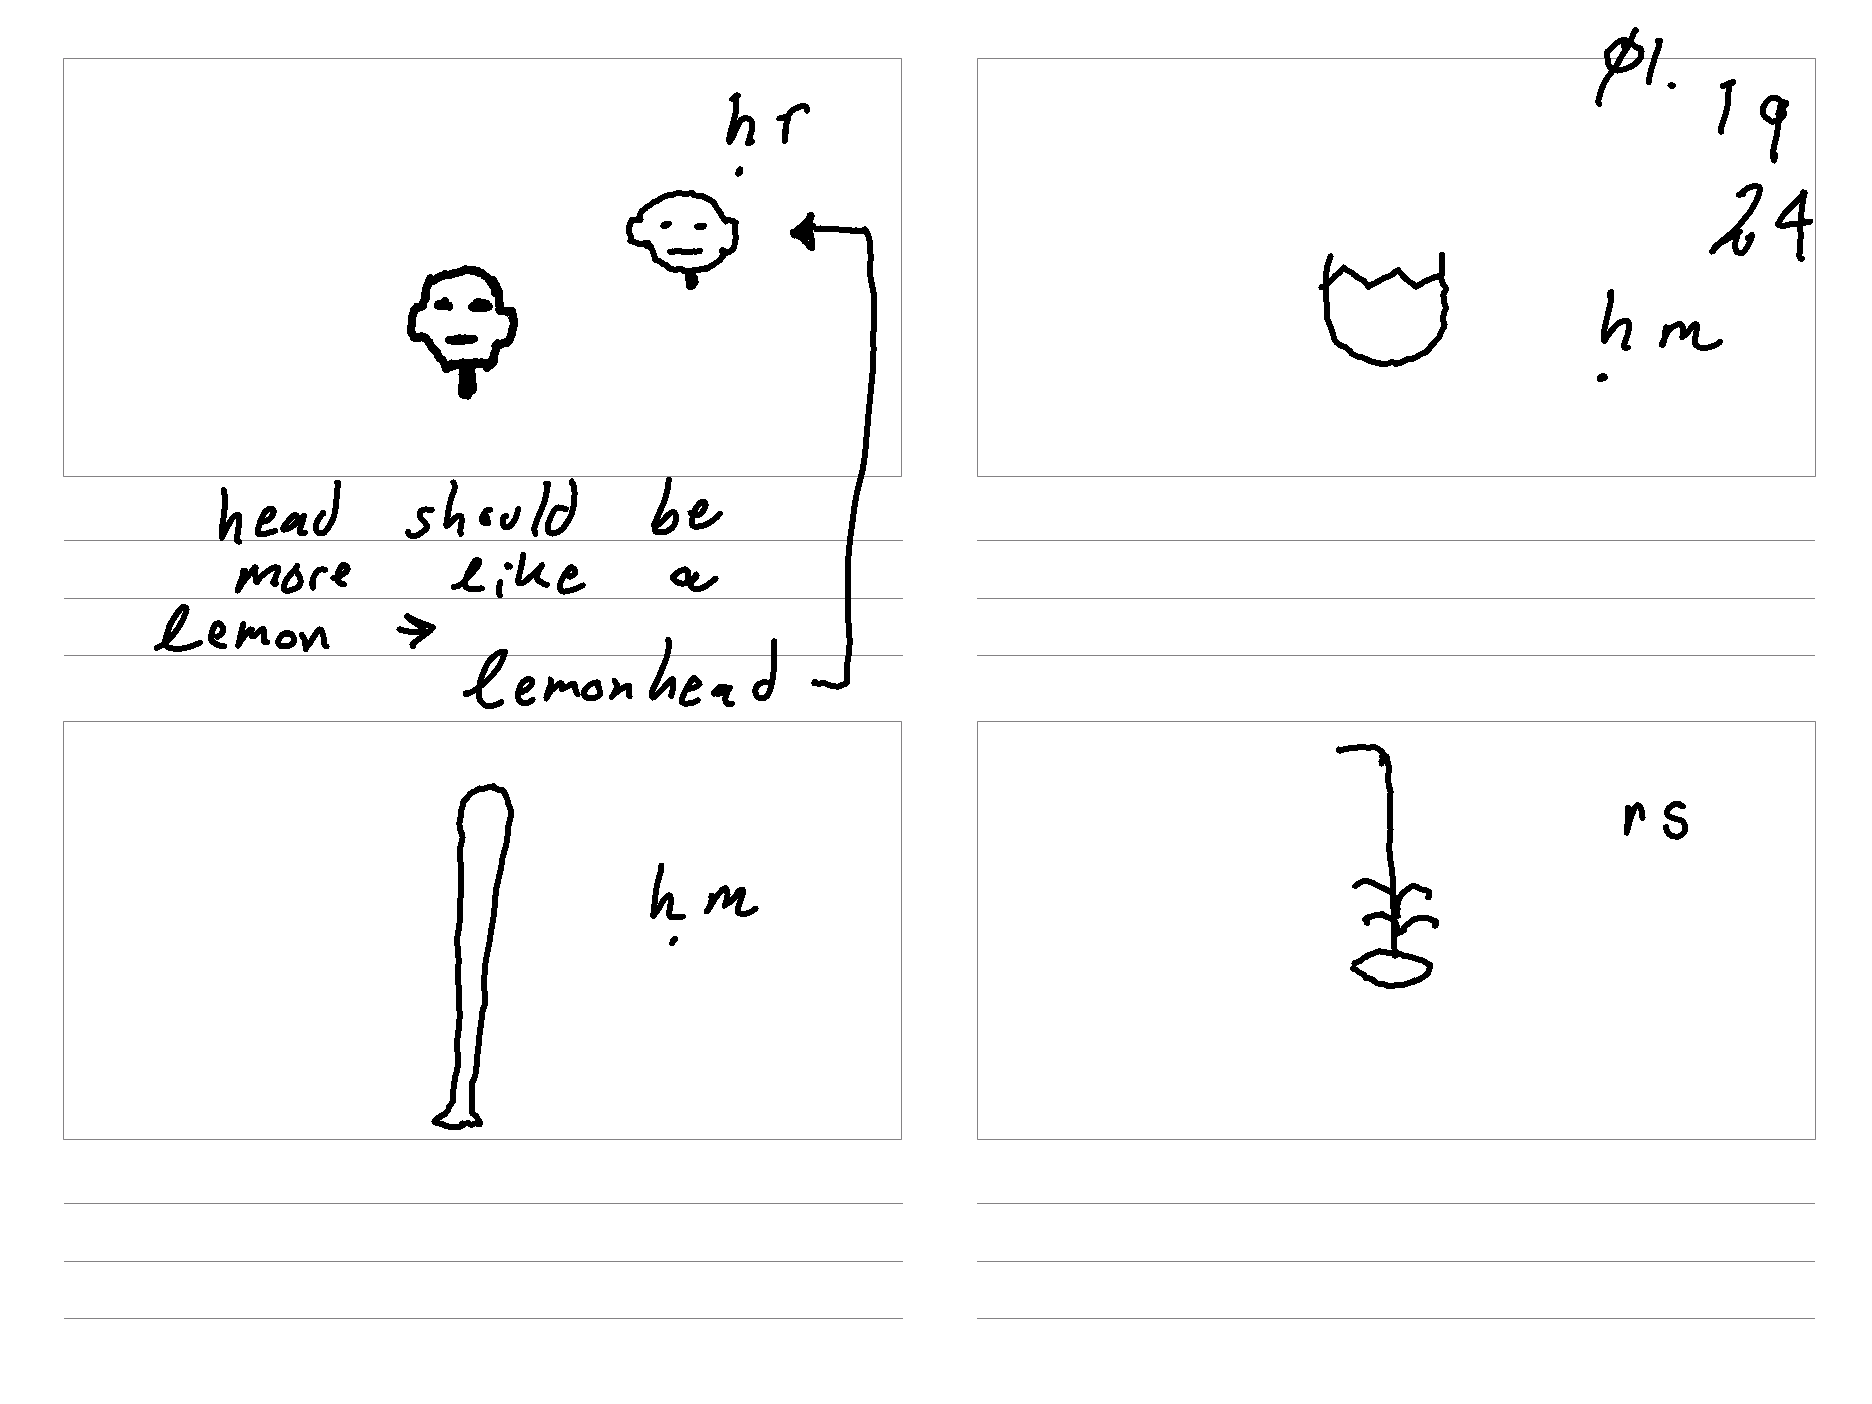 ḥr
head should be
more like a
lemon →
lemonhead
01.
19
24
ḥm
ḥm
rs